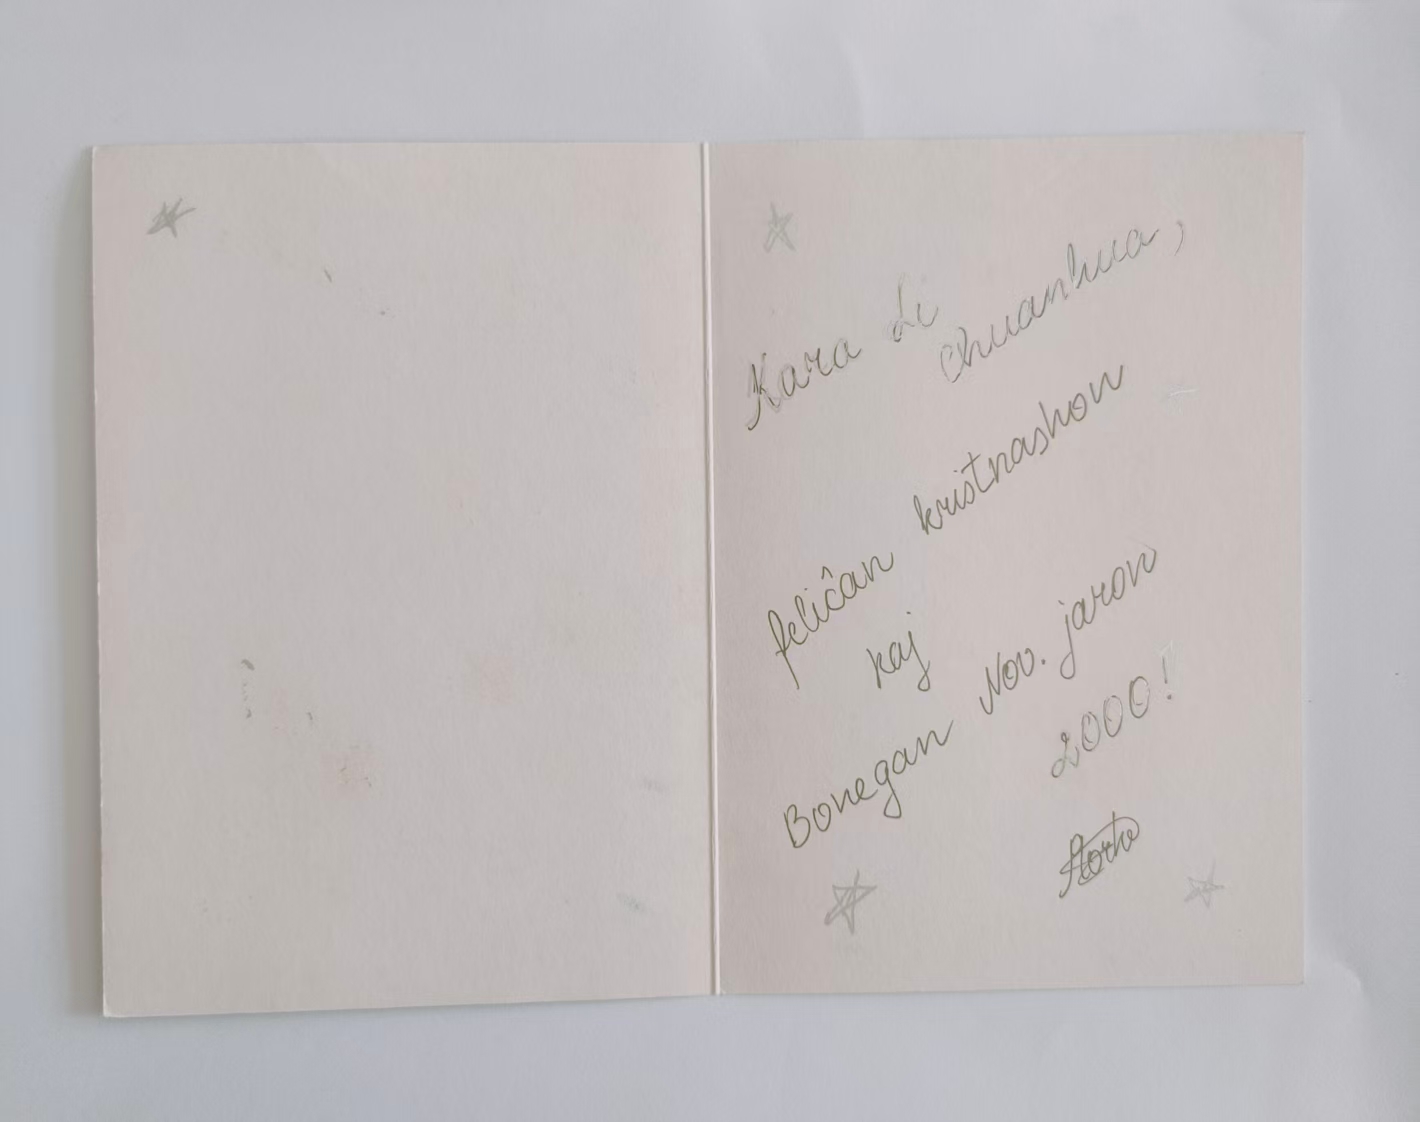 Kara Li
Chuanhua,
feliĉan kristnashon
kaj
Bonegan Nov. jaron
2000!